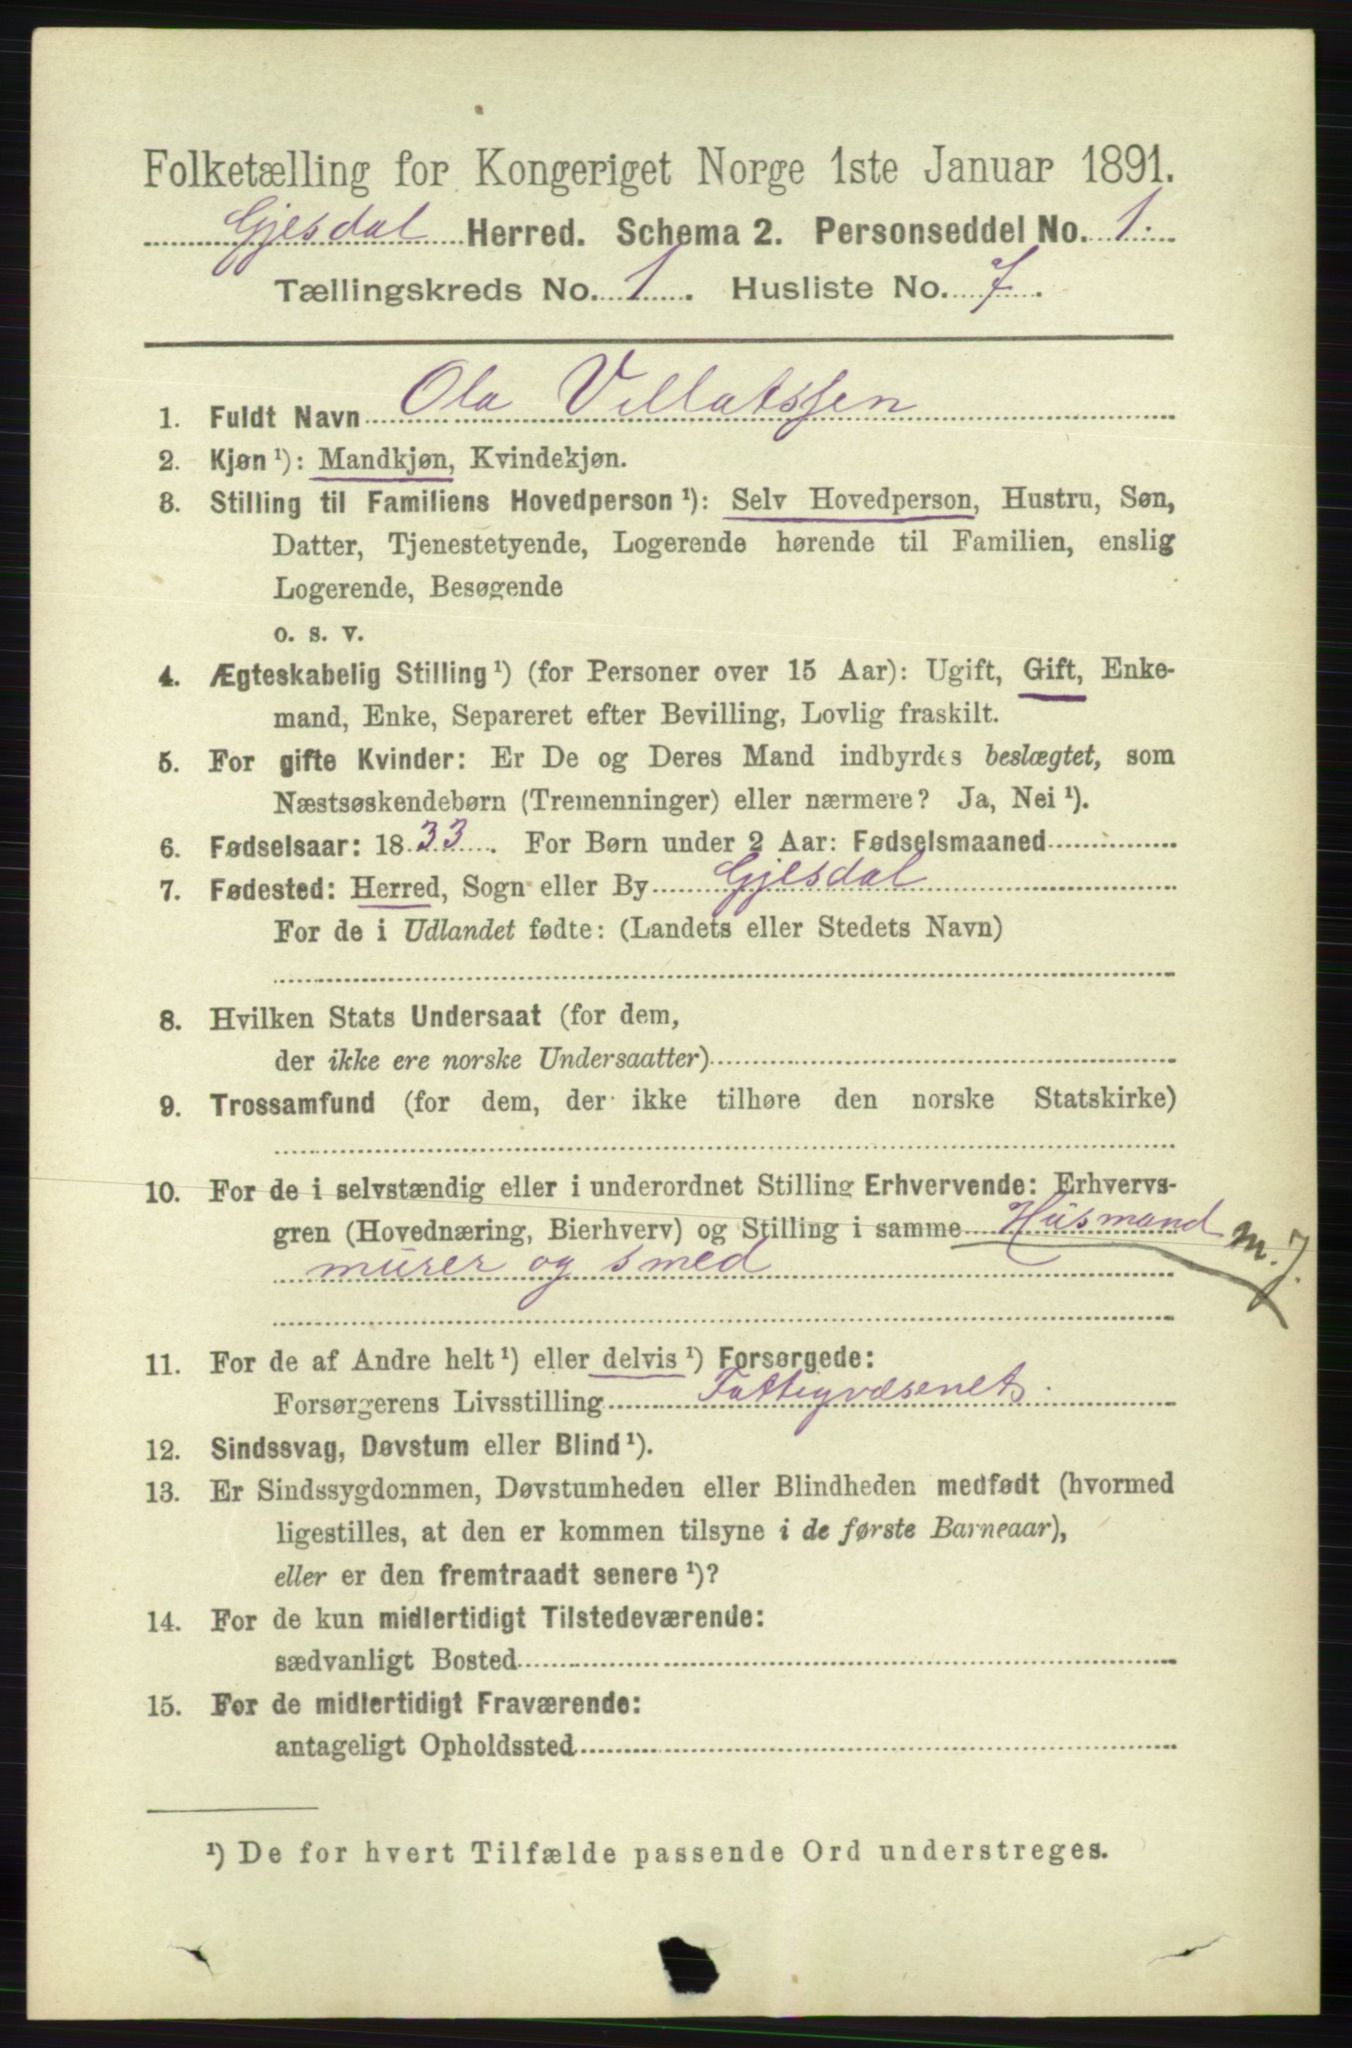 Folketælling for Kongeriget Norge 1ste Januar 1891.
Gjesdal Herred. Schema 2. Personseddel No. 1.
Tællingskreds No. 1. Husliste No. 7.
1. Fuldt Navn Ola Villatssen
2. Kjøn ¹): Mandkjøn, Kvindekjøn.
3. Stilling til Familiens Hovedperson ¹): Selv Hovedperson, Hustru, Søn,
Datter, Tjenestetyende, Logerende hørende til Familien, enslig
Logerende, Besøgende
o. s. v.
4. Ægteskabelig Stilling ¹) (for Personer over 15 Aar): Ugift, Gift, Enke-
mand, Enke, Separeret efter Bevilling, Lovlig fraskilt.
5. For gifte Kvinder: Er De og Deres Mand indbyrdes beslægtet, som
Næstsøskendebørn (Tremenninger) eller nærmere? Ja, Nei ¹).
6. Fødselsaar: 1833. For Børn under 2 Aar: Fødselsmaaned
7. Fødested: Herred, Sogn eller By Gjesdal
For de i Udlandet fødte: (Landets eller Stedets Navn)
8. Hvilken Stats Undersaat (for dem,
der ikke ere norske Undersaatter)
9. Trossamfund (for dem, der ikke tilhøre den norske Statskirke)
10. For de i selvstændig eller i underordnet Stilling Erhvervende: Erhvervs-
gren (Hovednæring, Bierhverv) og Stilling i samme Husmand m. J.
murer og smed
11. For de af Andre helt ¹) eller delvis ¹) Forsørgede:
Forsørgerens Livsstilling Fattigvæsenets.
12. Sindssvag, Døvstum eller Blind ¹).
13. Er Sindssygdommen, Døvstumheden eller Blindheden medfødt (hvormed
ligestilles, at den er kommen tilsyne i de første Barneaar),
eller er den fremtraadt senere ¹)?
14. For de kun midlertidigt Tilstedeværende:
sædvanligt Bosted
15. For de midlertidigt Fraværende:
antageligt Opholdssted
¹) De for hvert Tilfælde passende Ord understreges.